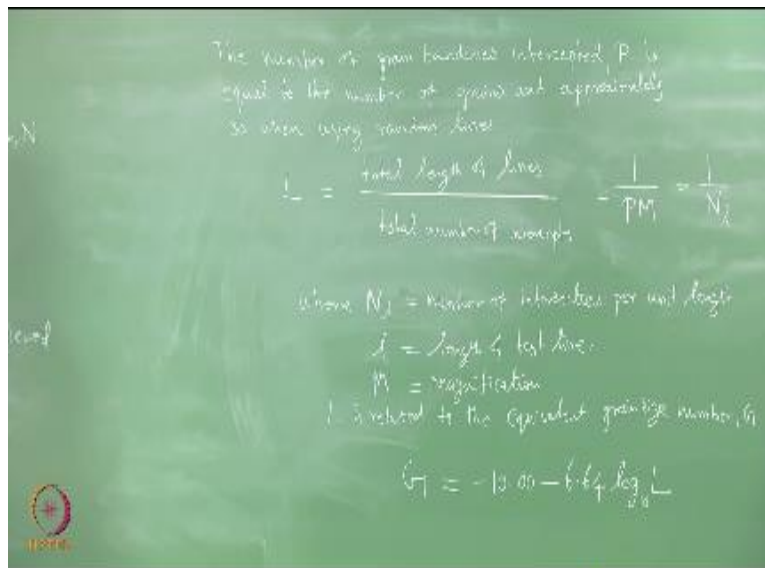 The number of grain boundaries intercepted, P is
equal to the number of grains cut approximately
so when using random lines
, N
L = total length of lines / total number of = 1 / PM = 1 / N
where N = number of per unit length
iewed
l = length of test line.
M = magnification
L is related to the equivalent grain size number, G
G = -10.00 - 6.64 log L